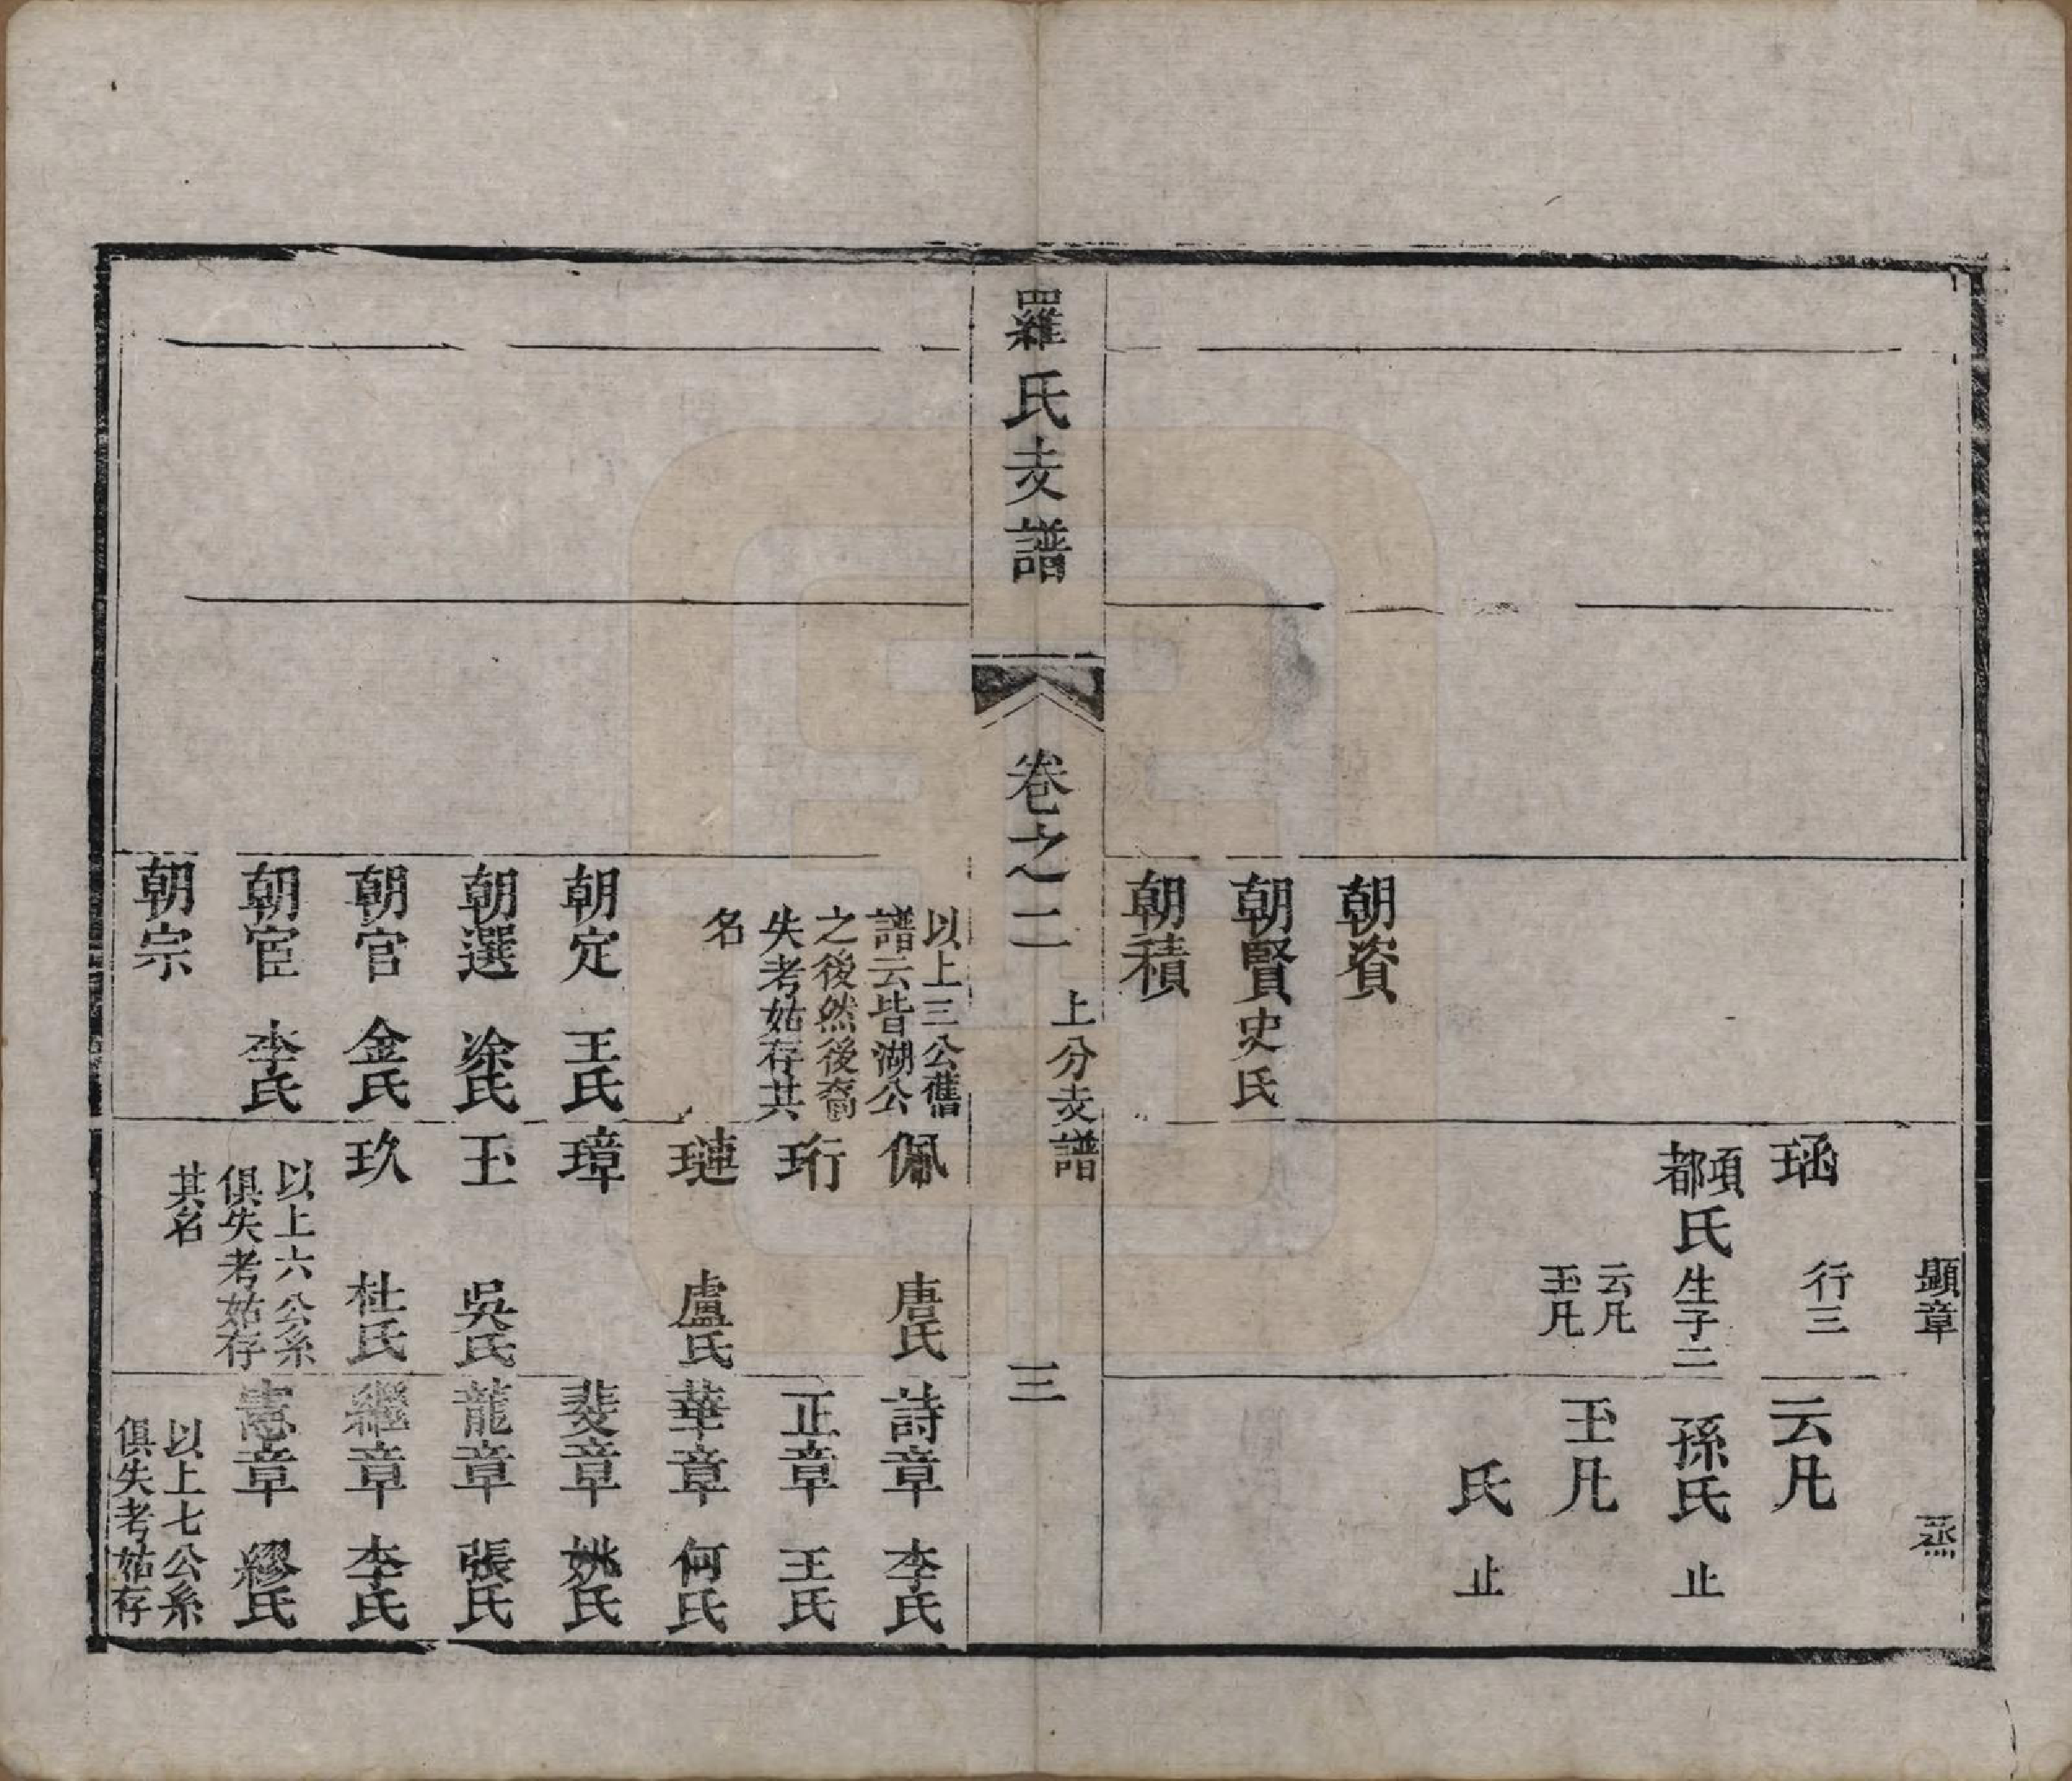 顯章
烝
朝資
朝賢史氏
朝積
瑶 行三
項都氏生子二
云凡
玉凡
云凡
孫氏 止
玉凡
氏 止
羅氏支譜
卷之二
上分支譜
三
以上三公舊
譜云皆湖公
之後然後裔
失考姑存其
名
朝定 王氏
朝選 涂氏
朝官 金氏
朝宦 李氏
朝宗
佩 唐氏
珩
璉 盧氏
璋
玉 吳氏
玖 杜氏
以上六公系
俱失考姑存
其名
詩章 李氏
正章 王氏
華章 何氏
斐章 姚氏
龍章 張氏
繼章 李氏
憲章 繆氏
以上七公系
俱失考姑存